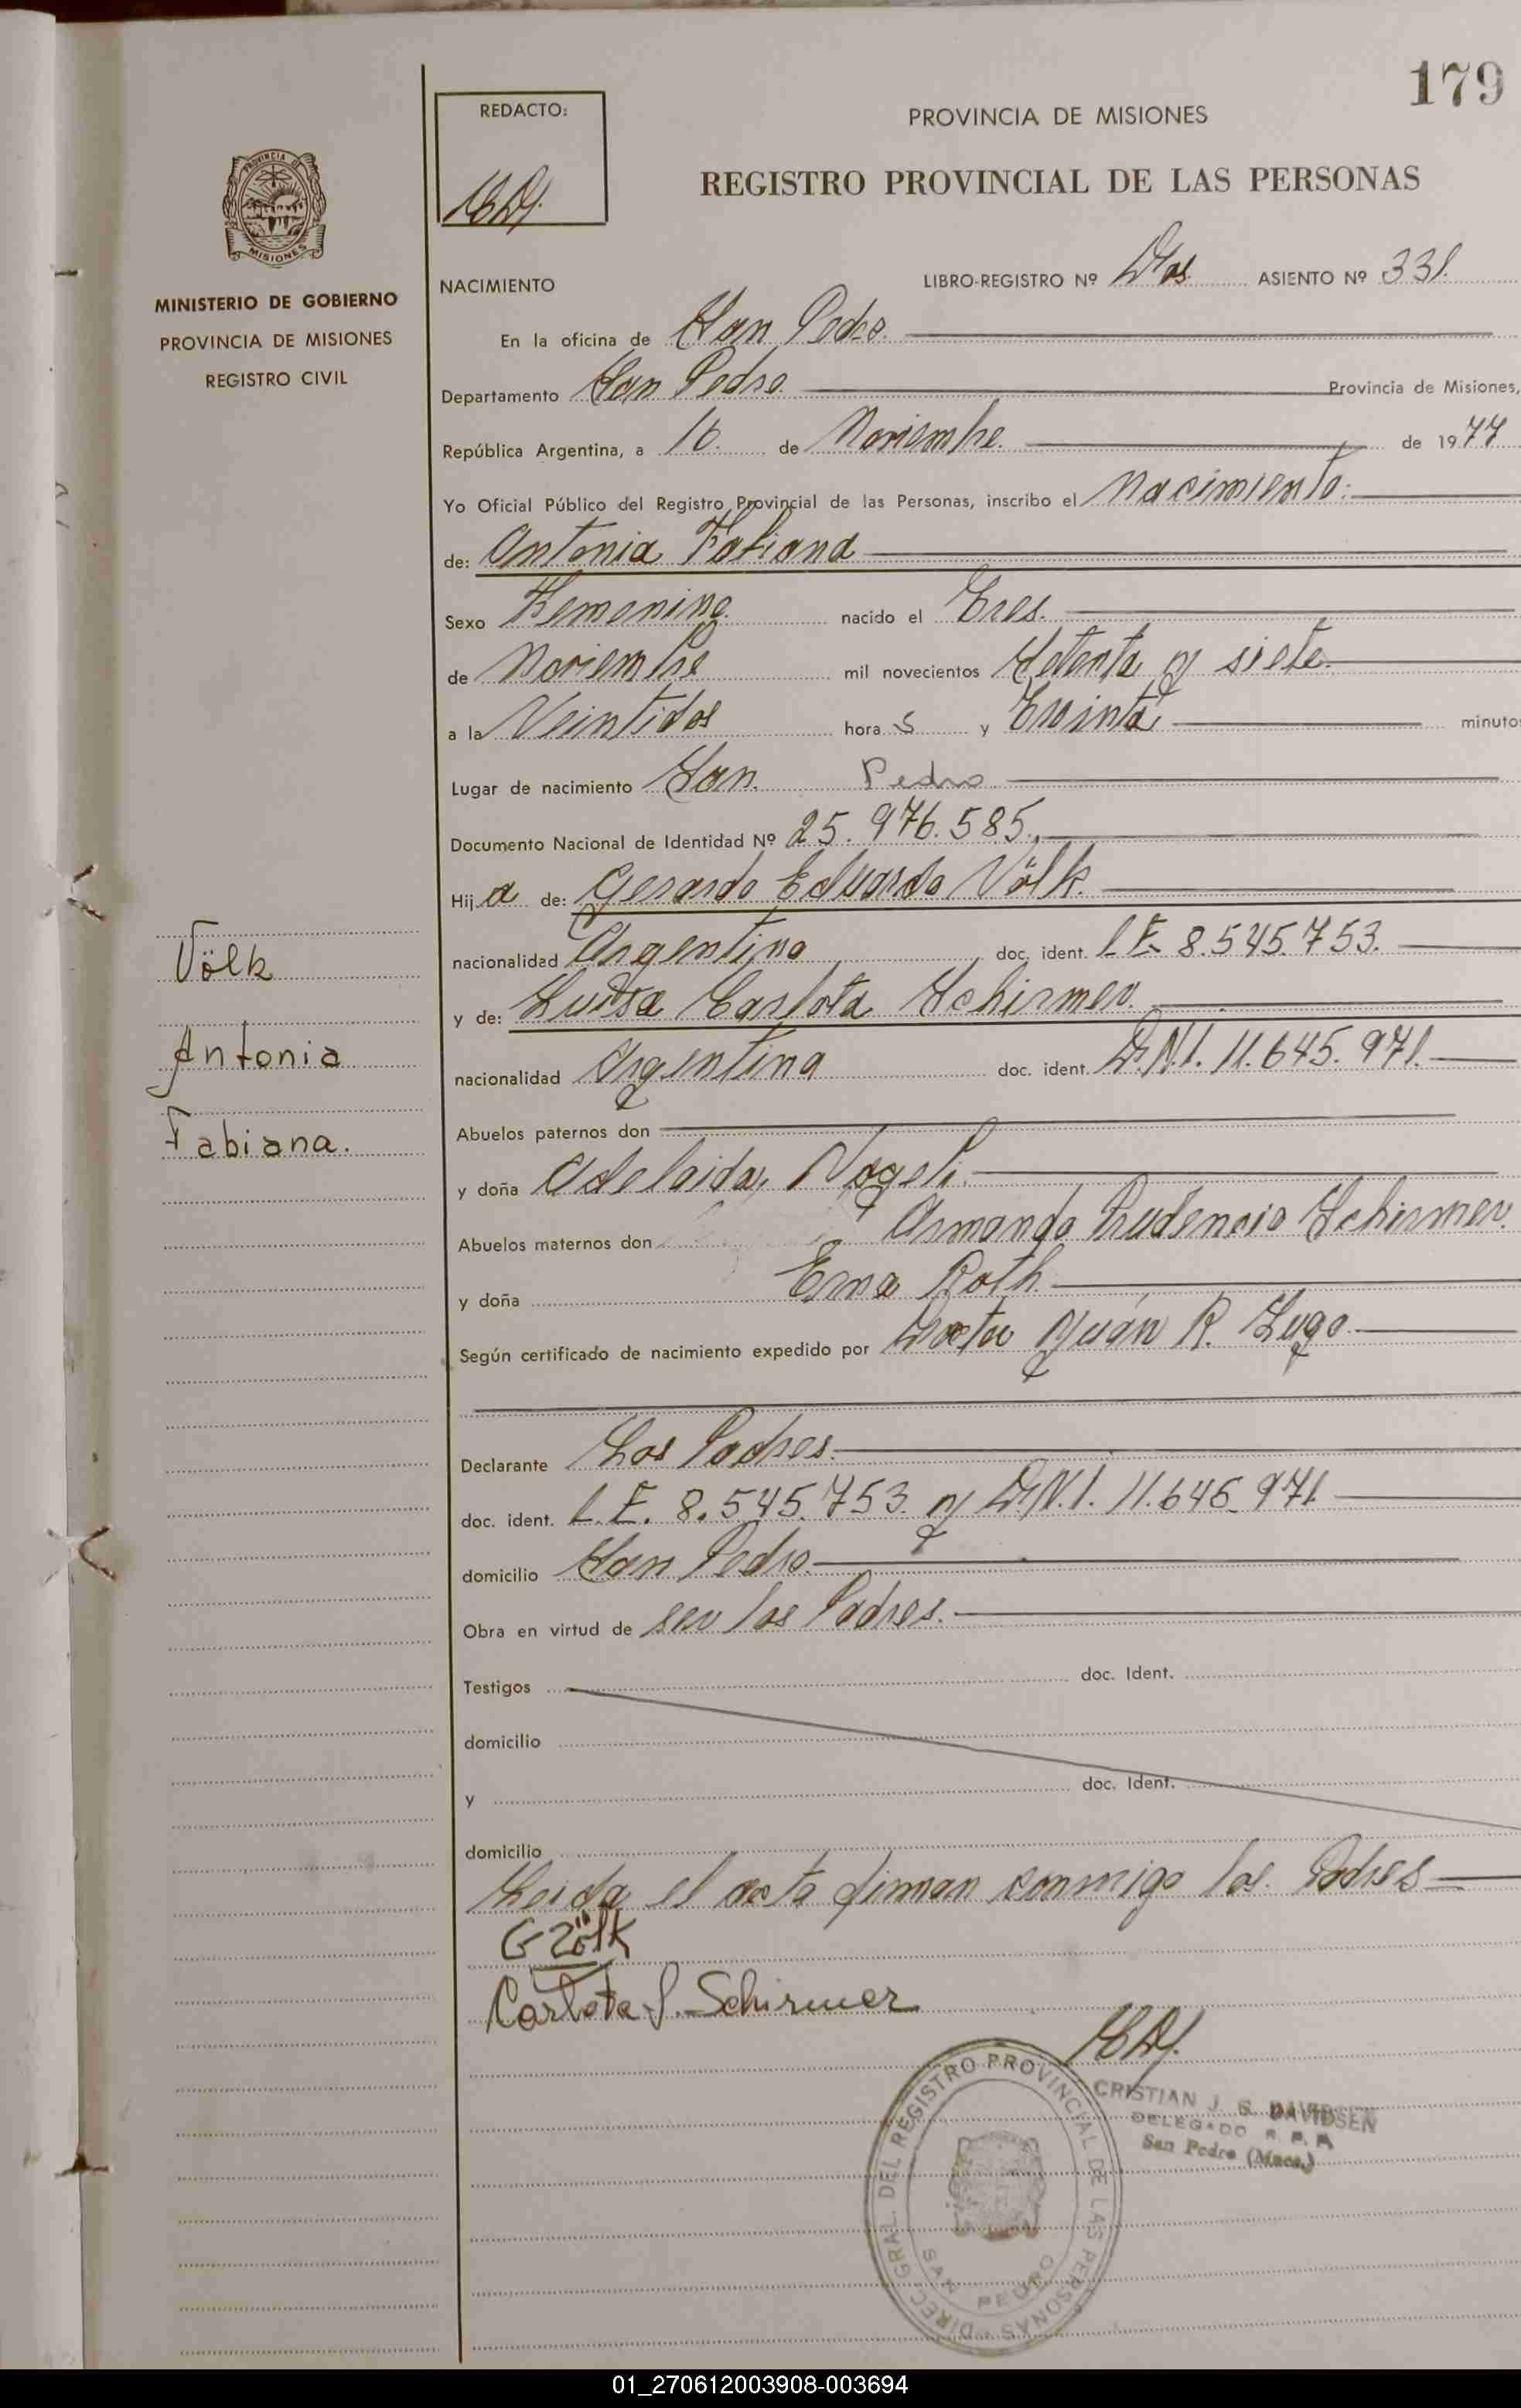 179
REDACTO:
PROVINCIA DE MISIONES
REGISTRO PROVINCIAL DE LAS PERSONAS
PROVINCIA DE MISIONES
MINISTERIO DE GOBIERNO
PROVINCIA DE MISIONES
REGISTRO CIVIL
NACIMIENTO
LIBRO-REGISTRO Nº Dos. ASIENTO Nº 331.
En la oficina de San Pedro.
Departamento San Pedro. Provincia de Misiones,
República Argentina, a 16. de Noviembre. de 1977
Yo Oficial Público del Registro Provincial de las Personas, inscribo el Nacimiento.
de: Antonia Fabiana
Sexo Femenino. nacido el Tres.
de Noviembre mil novecientos Setenta y siete.
a la Veintidos hora s y Treinta minutos
Lugar de nacimiento San. Pedro
Documento Nacional de Identidad Nº 25.976.585.
Hij a de: Gerardo Eduardo Völk.
nacionalidad Argentino doc. ident. L.E. 8.545.753.
y de: Luisa Carlota Schirmer.
nacionalidad Argentina doc. ident. D.N.I. 11.645.971.
Abuelos paternos don
y doña Adelaida, Nogeli.
Abuelos maternos don Armando Prudencio Schirmer.
y doña Erna Roth.
Según certificado de nacimiento expedido por Doctor Juán R. Lugo.
Declarante Los Padres.
doc. ident. L.E. 8.545.753. y D.N.I. 11.645.971.
domicilio San Pedro.
Obra en virtud de ser los Padres.
Testigos doc. Ident.
domicilio
y doc. Ident.
domicilio
Leida el acta firman conmigo los Padres
G Völk
Carlota L. Schirmer
CRISTIAN J. G. DAVIDSEN
DELEGADO R. P. P.
San Pedro (Mnes.)
DIREC. GRAL. DEL REGISTRO PROVINCIAL DE LAS PERSONAS
SAN PEDRO
Völk
Antonia
Fabiana.
01_270612003908-003694